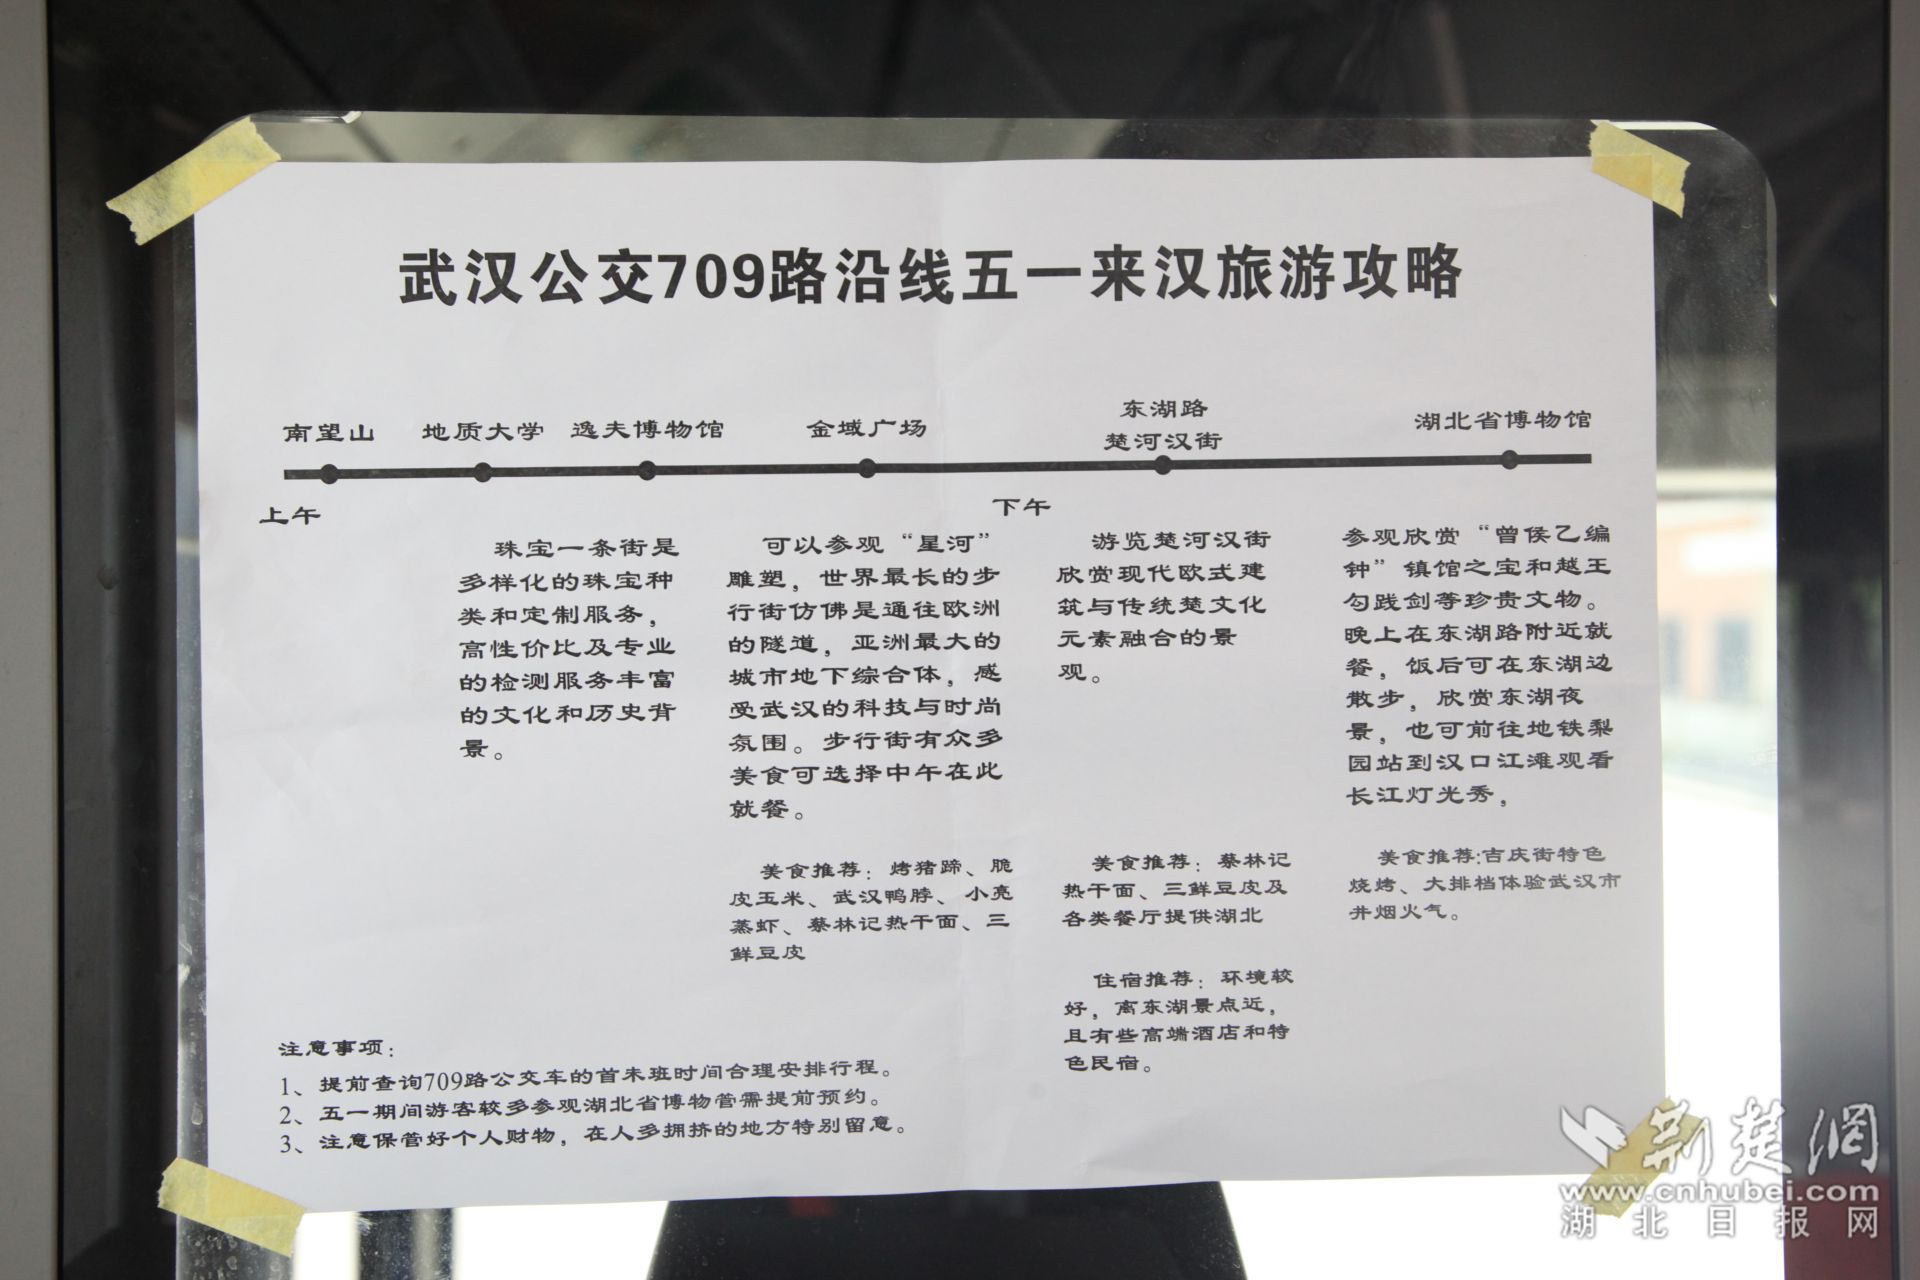 武汉公交709路沿线五一来汉旅游攻略
南望山
地质大学
逸夫博物馆
金域广场
东湖路
楚河汉街
湖北省博物馆
上午
下午
珠宝一条街是
多样化的珠宝种
类和定制服务，
高性价比及专业
的检测服务丰富
的文化和历史背
景。
可以参观“星河”
雕塑，世界最长的步
行街仿佛是通往欧洲
的隧道，亚洲最大的
城市地下综合体，感
受武汉的科技与时尚
氛围。步行街有众多
美食可选择中午在此
就餐。
美食推荐：烤猪蹄、脆
皮玉米、武汉鸭脖、小亮
蒸虾、蔡林记热干面、三
鲜豆皮
游览楚河汉街
欣赏现代欧式建
筑与传统楚文化
元素融合的景
观。
美食推荐：蔡林记
热干面、三鲜豆皮及
各类餐厅提供湖北
住宿推荐：环境较
好，离东湖景点近，
且有些高端酒店和特
色民宿。
参观欣赏“曾侯乙编
钟”镇馆之宝和越王
勾践剑等珍贵文物。
晚上在东湖路附近就
餐，饭后可在东湖边
散步，欣赏东湖夜
景，也可前往地铁梨
园站到汉口江滩观看
长江灯光秀，
美食推荐:吉庆街特色
烧烤、大排档体验武汉市
井烟火气。
注意事项：
1、提前查询709路公交车的首末班时间合理安排行程。
2、五一期间游客较多参观湖北省博物管需提前预约。
3、注意保管好个人财物，在人多拥挤的地方特别留意。
荆楚网
www.cnhubei.com
湖北日报网